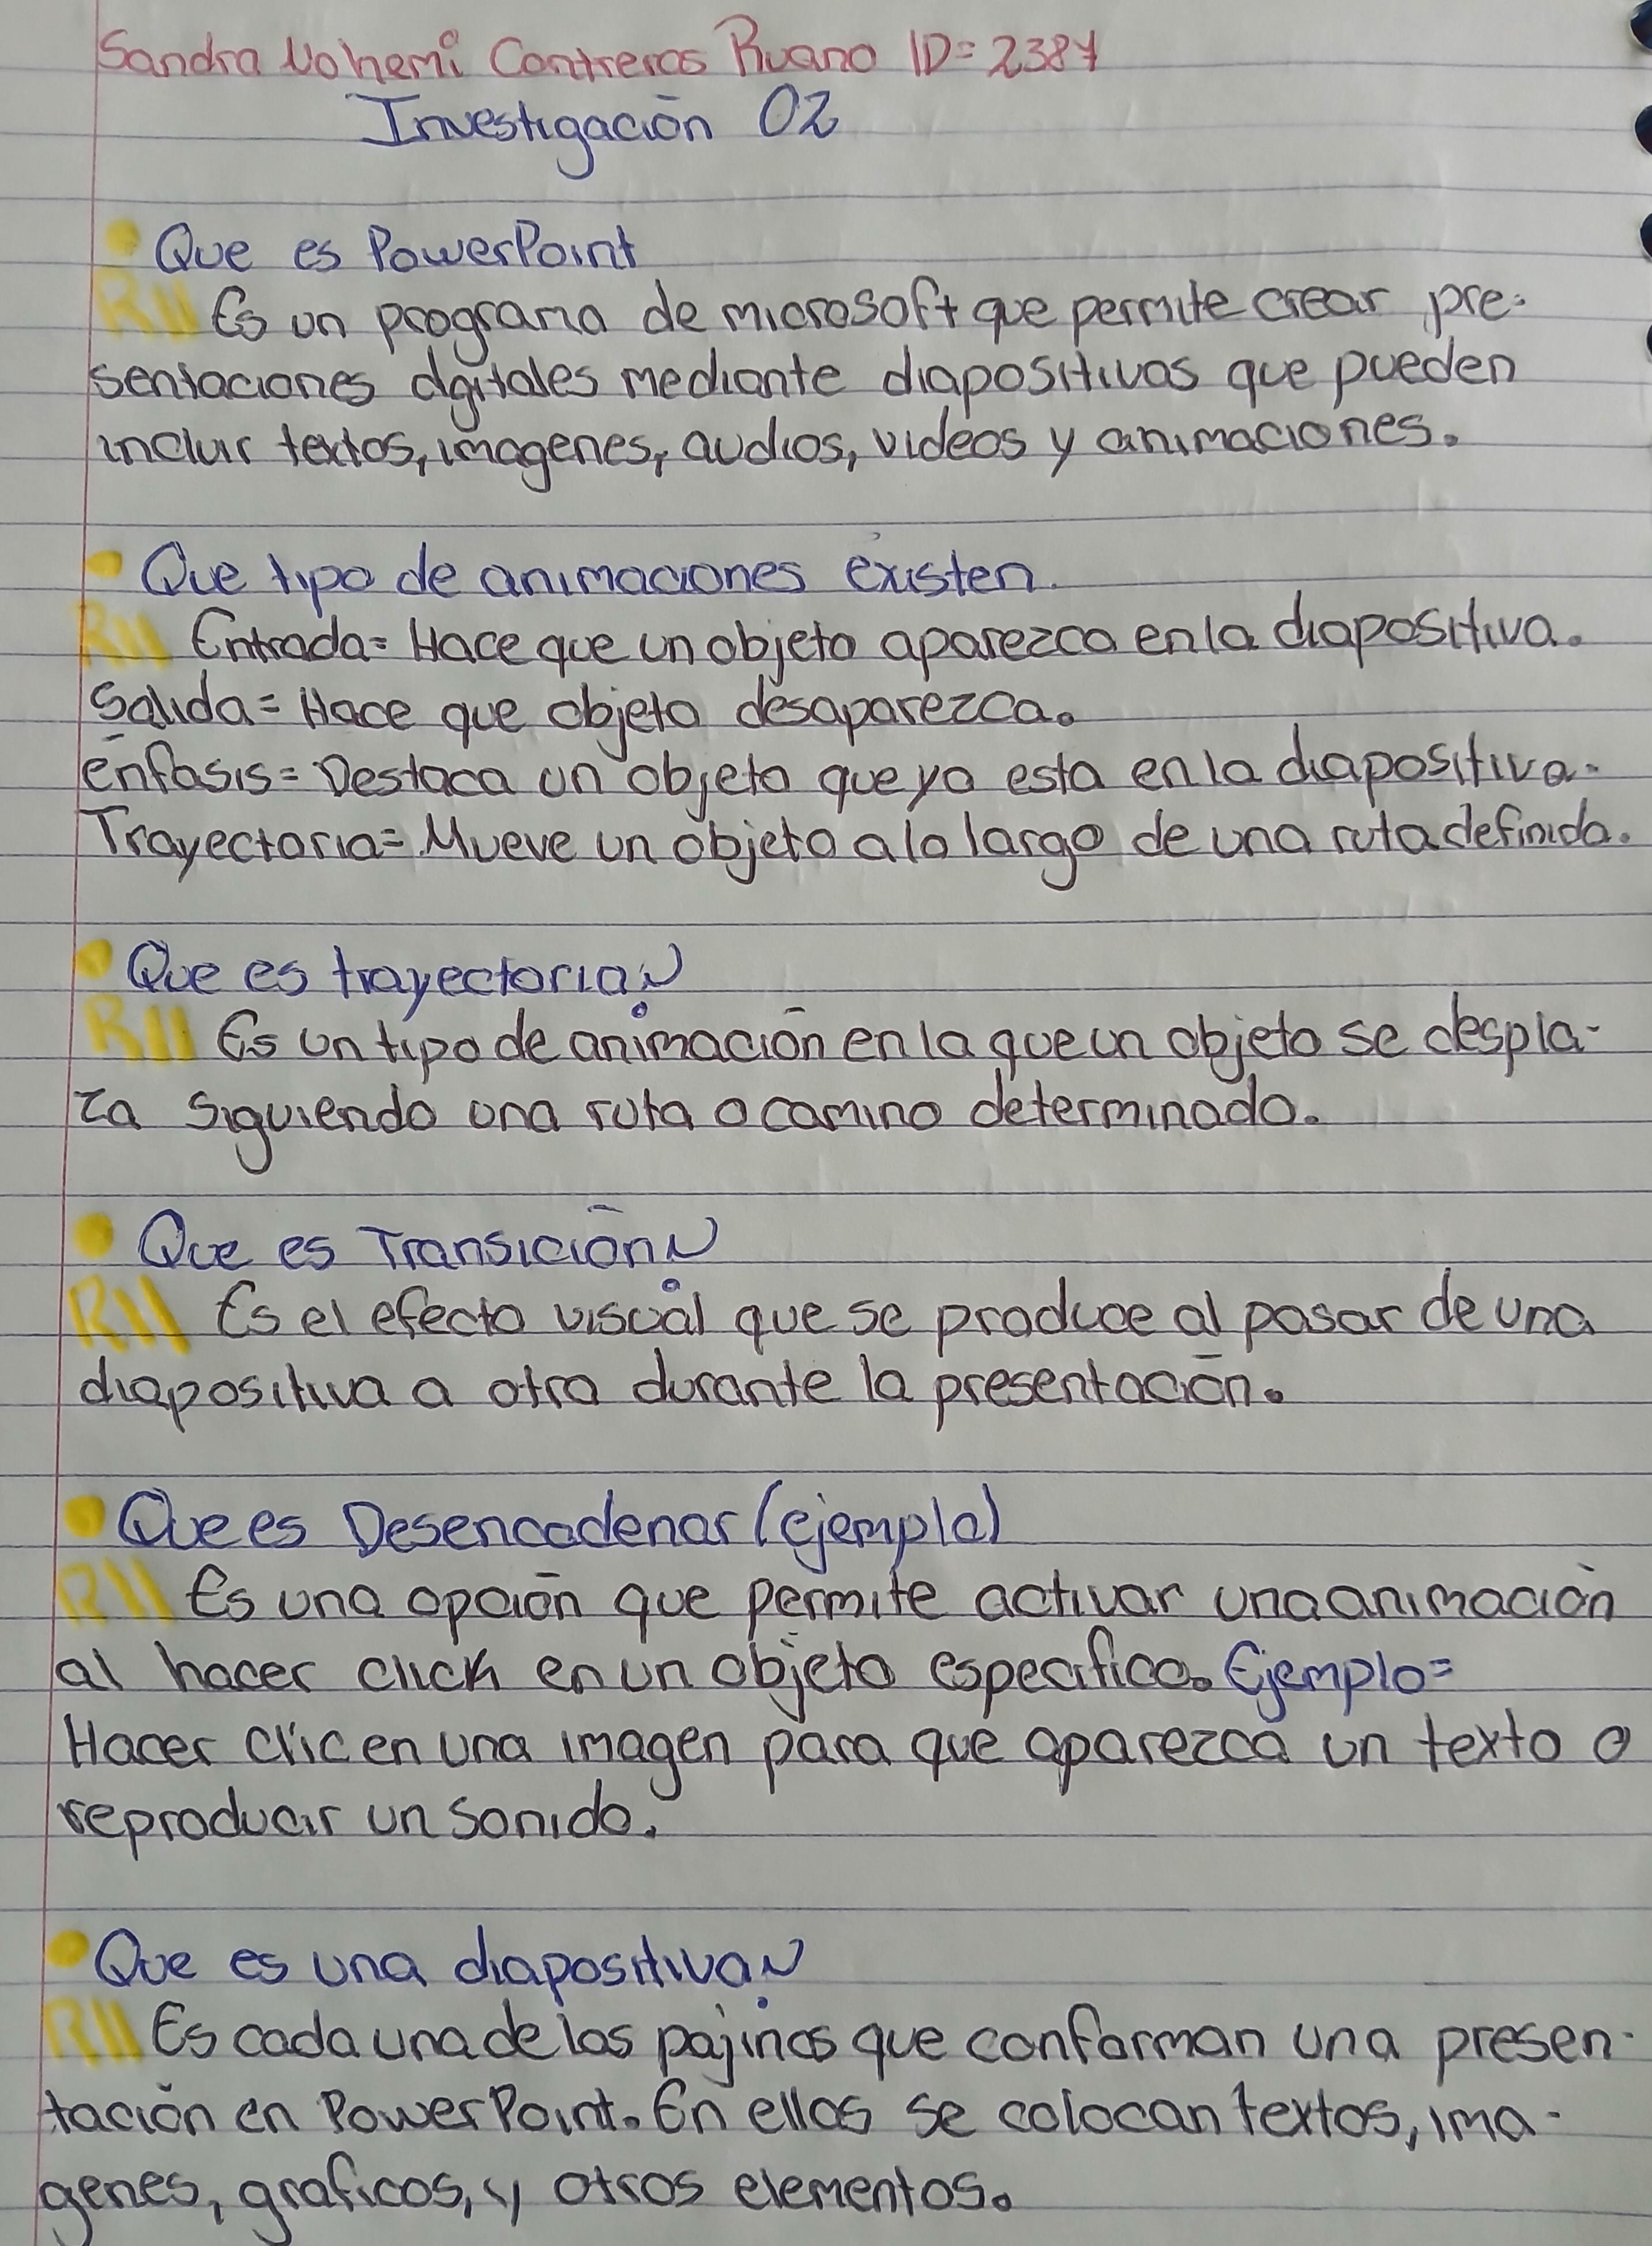 Sandra Nohemi Contreras Ruano ID=2387
Investigación 02
• Que es PowerPoint
R// Es un programa de microsoft que permite crear pre-
sentaciones dgitales mediante diapositivas que pueden
incluir textos, imagenes, audios, videos y animaciones.
• Que tipo de animaciones existen.
R// Entrada= Hace que un objeto aparezca en la diapositiva.
Salida= Hace que objeto desaparezca.
énfasis= Destaca un objeto que ya esta en la diapositiva.
Trayectoria= Mueve un objeto a lo largo de una ruta definida.
• Que es trayectoria?
R// Es un tipo de animación en la que un objeto se despla-
za siguiendo una ruta o camino determinado.
• Que es Transición?
R// Es el efecto visual que se produce al pasar de una
diapositiva a otra durante la presentación.
• Que es Desencadenar (ejemplo)
R// Es una opción que permite activar una animación
al hacer click en un objeto especifico. Ejemplo=
Hacer clic en una imagen para que aparezca un texto o
reproducir un sonido.
• Que es una diapositiva?
R// Es cada una de las pajinas que conforman una presen-
tación en PowerPoint. En ellas se colocan textos, ima-
genes, graficos, y otros elementos.